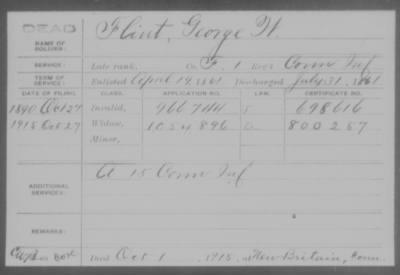 DEAD
Flint, George W.
NAME OF SOLDIER:
SERVICE: Late rank, Co. F, 1 Reg't Conn Inf
TERM OF SERVICE: Enlisted April 19, 1861 Discharged July 31, 1861
DATE OF FILING. CLASS. APPLICATION NO. LAW. CERTIFICATE NO.
1890 Oct 27 Invalid, 966744 698616
1915 Oct 27 Widow, 1054896 800257
Minor,
A 15 Conn Inf
ADDITIONAL SERVICES:
REMARKS:
Died Oct 1, 1915, at New Britain, Conn.